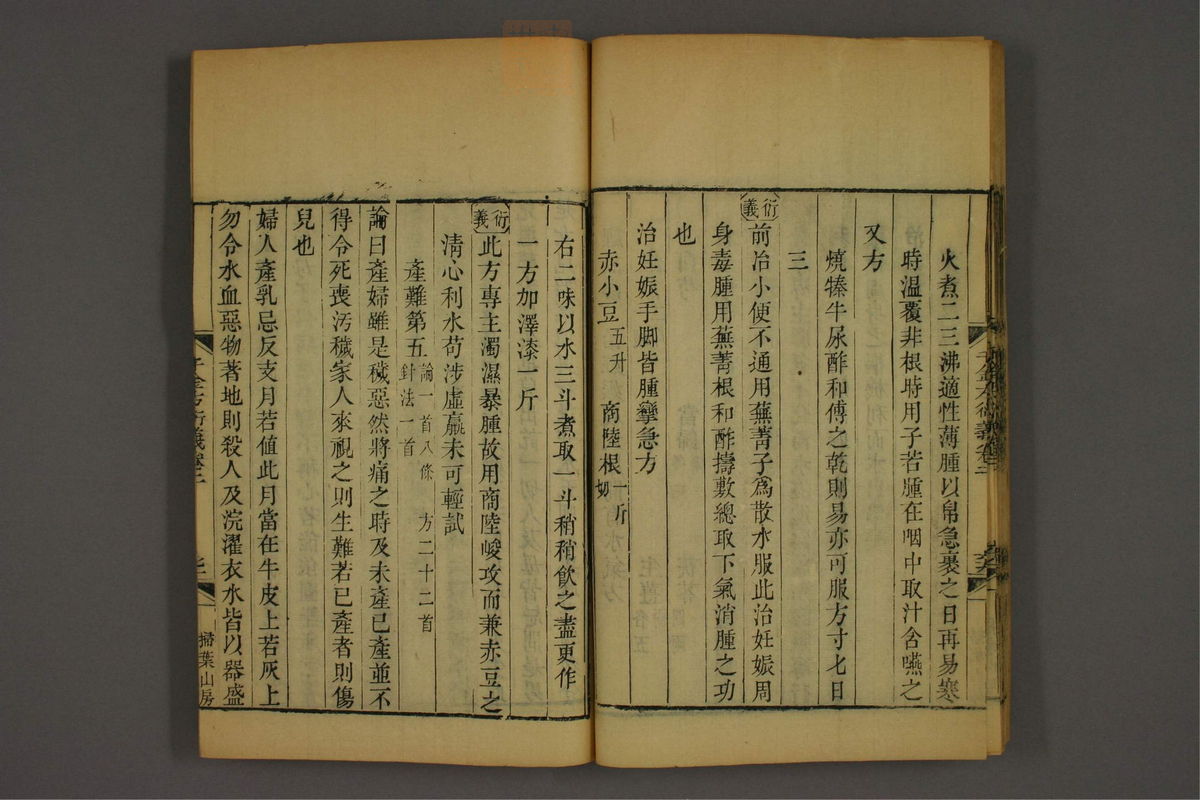 火煮二三沸適性薄腫以帛急裹之日再易寒
時溫覆非根時用子若腫在咽中取汁含嚥之
又方
燒犗牛屎酢和傅之乾則易亦可服方寸匕日
三
衍義 前治小便不通用蕪菁子為散水服此治妊娠周
身毒腫用蕪菁根和酢擣敷總取下氣消腫之功
也
治妊娠手脚皆腫攣急方
赤小豆五升 商陸根一斤切
右二味以水三斗煮取一斗稍稍飲之盡更作
一方加澤漆一斤
衍義 此方專主濁濕暴腫故用商陸峻攻而兼赤豆之
清心利水苟涉虛羸未可輕試
產難第五 論一首八條 方二十二首 針法一首
論曰產婦雖是穢惡然將痛之時及未產已產並不
得令死喪汚穢家人來視之則生難若已產者則傷
兒也
婦人產乳忌反支月若值此月當在牛皮上若灰上
勿令水血惡物著地則殺人及浣濯衣水皆以器盛
千金方衍義卷二
掃葉山房